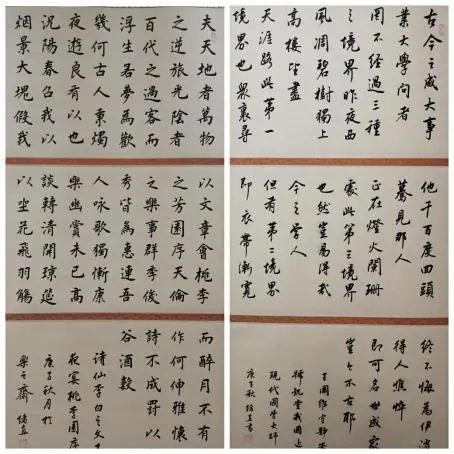 夫天地者萬物
之逆旅光陰者
百代之過客而
浮生若夢為歡
幾何古人秉燭
夜遊良有以也
況陽春召我以
烟景大塊假我
以文章會桃李
之芳園序天倫
之樂事群季俊
秀皆為惠連吾
人咏歌獨慚康
樂幽賞未已高
談轉清開瓊筵
以坐花飛羽觴
而醉月不有
作何伸雅懷
詩不成罰以
谷酒數
詩仙李白之文
夜宴桃李園序
庚子秋月於
樂之齋
古今之成大事
業大學問者
罔不經過三種
之境界昨夜西
風凋碧樹獨上
高樓望盡
天涯路此第一
境界也衆裏尋
他千百度回頭
驀見那人
正在燈火闌珊
處此第三境界
也然豈易得哉
今之學人
但有第二境界
即衣帶漸寬
終不悔為伊消
得人憔悴
即可名世成家
不古耶
王國維字靜安
現代國學大師
庚子秋